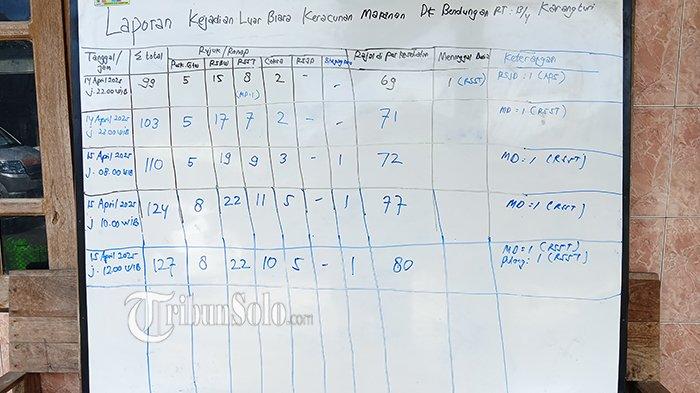 Laporan Kejadian Luar Biasa Keracunan Makanan Dk Bendungan RT: B/y Karangturi
Tanggal/ Σ total Rujuk/Ranap Rajal di Meninggal Dunia Keterangan
jam RSDW RSST Cakra RSJD
14 April 2025 99 5 15 8 2 - - 69 1 (RSST) RSJD : 1 (APS)
j. 22.00 WIB (MD:1)
14 April 2025 103 5 17 7 2 - - 71 MD = 1 (RSST)
j. 23.00 WIB
15 April 2025 110 5 19 9 3 - 1 72 MD = 1 (RSST)
j. 08.00 WIB
15 April 2025 124 8 22 11 5 - 1 77 MD = 1 (RSST)
j 10.00 WIB
15 April 2025 127 8 22 10 5 - 1 80 MD = 1 (RSST)
j. 12.00 WIB Plg : 1 (RSST)
TribunSolo.com